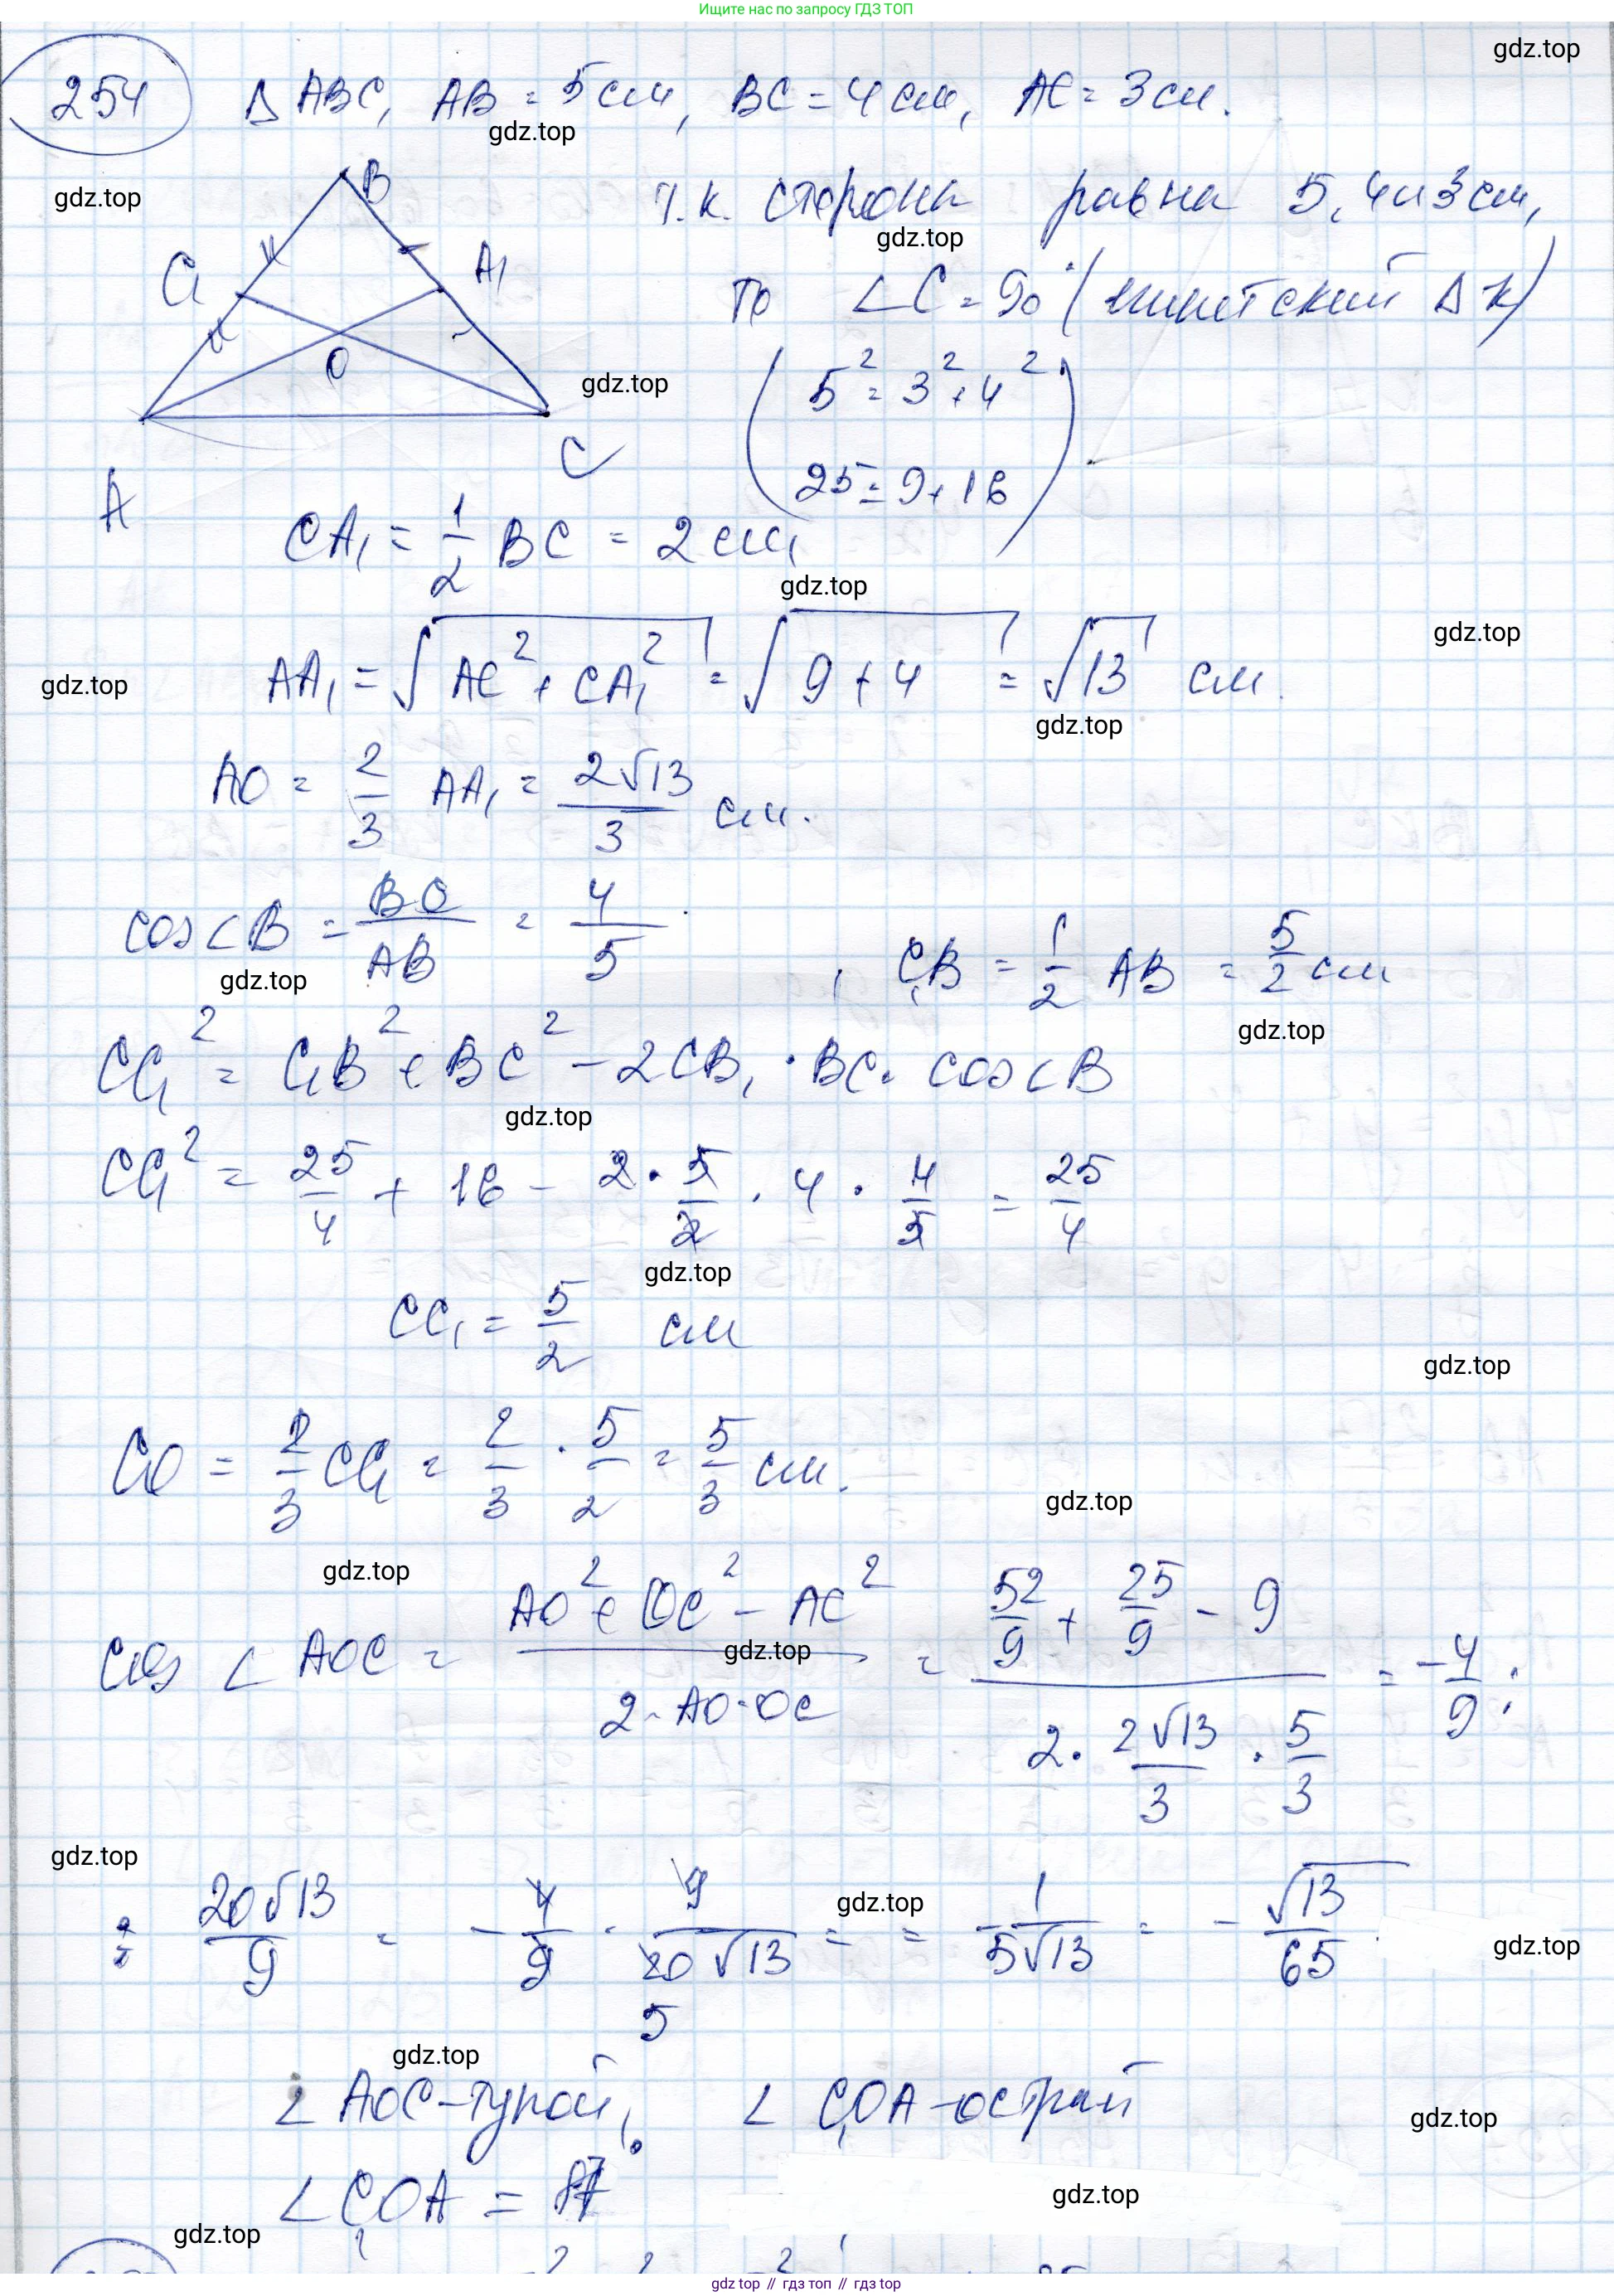 Ищите нас по запросу ГДЗ ТОП
gdz.top
254 Δ ABC, AB = 5 см, BC = 4 см, AC = 3 см.
gdz.top
gdz.top
B
Т.к. сторона равна 5, 4 и 3 см,
gdz.top
C₁ A₁
то ∠C = 90° (египетский Δ к)
O
gdz.top
(5² = 3² + 4²
25 = 9 + 16)
A C
CA₁ = 1/2 BC = 2 см,
gdz.top
gdz.top
AA₁ = √(AC² + CA₁²) = √(9 + 4) = √13 см.
gdz.top
gdz.top
AO = 2/3 AA₁ = 2√13/3 см.
cos∠B = BC/AB = 4/5, C₁B = 1/2 AB = 5/2 см
gdz.top
gdz.top
CC₁² = C₁B² + BC² - 2CB₁ · BC · cos∠B
gdz.top
CC₁² = 25/4 + 16 - 2 · 5/2 · 4 · 4/5 = 25/4
gdz.top
CC₁ = 5/2 см
gdz.top
CO = 2/3 CC₁ = 2/3 · 5/2 = 5/3 см.
gdz.top
gdz.top
cos ∠AOC = (AO² + OC² - AC²)/(2 · AO · OC) = (52/9 + 25/9 - 9)/(2 · 2√13/3 · 5/3) = -4/9 :
gdz.top
gdz.top
: 20√13/9 = -4/9 · 9/20√13 = = -1/5√13 = -√13/65.
5
gdz.top
gdz.top
gdz.top
∠AOC - тупой, ∠C₁OA - острый
gdz.top
∠C₁OA = 87°
gdz.top
gdz.top
gdz top // гдз топ // гдз top